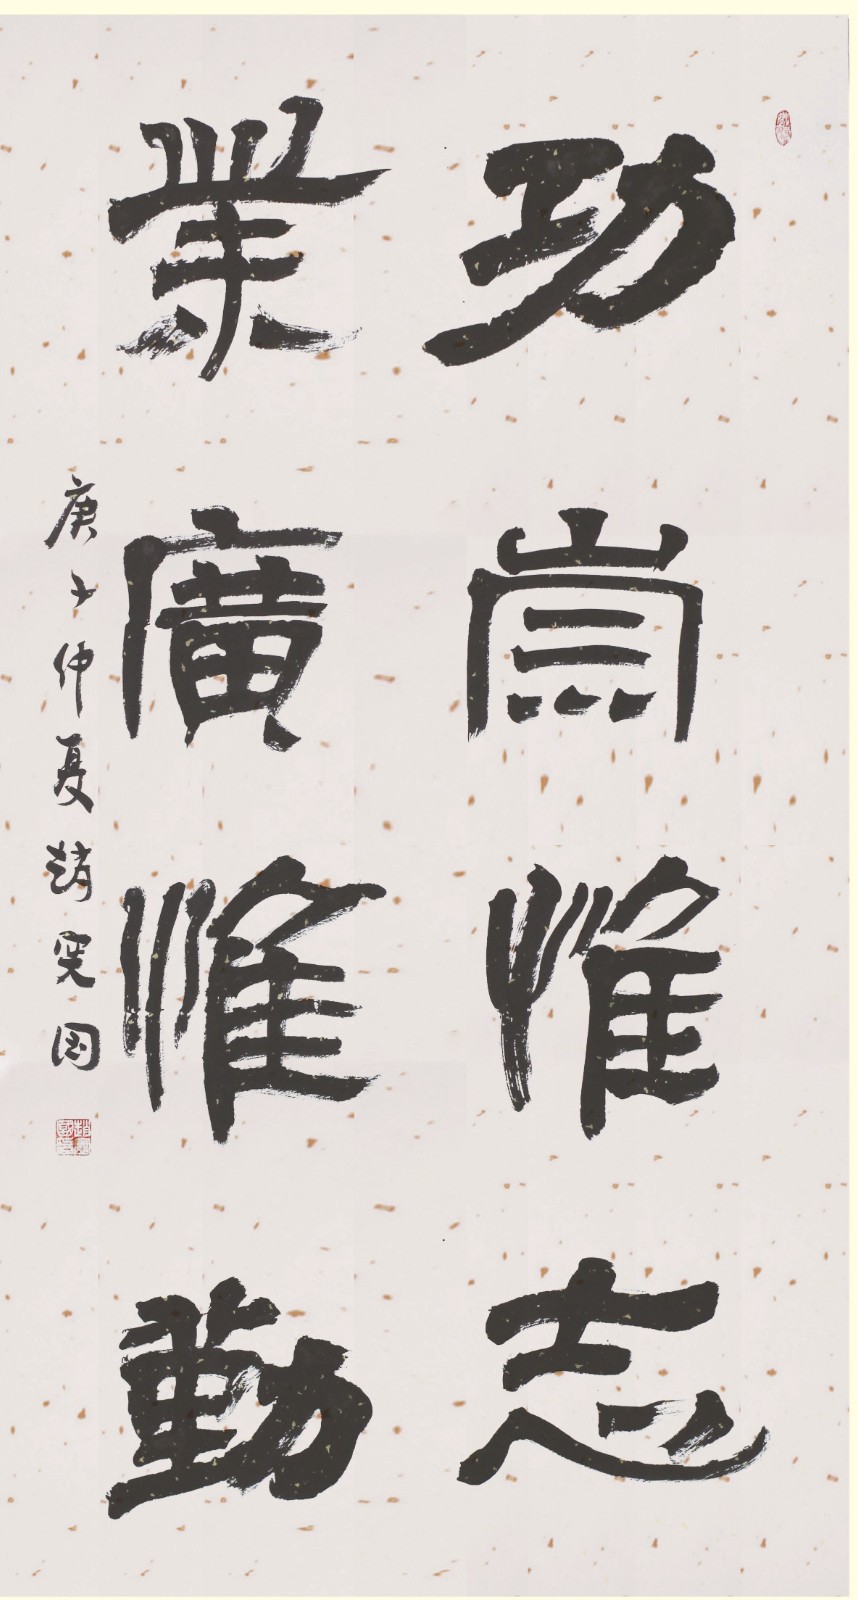 功崇惟志
業廣惟勤
庚子仲夏趙奕國